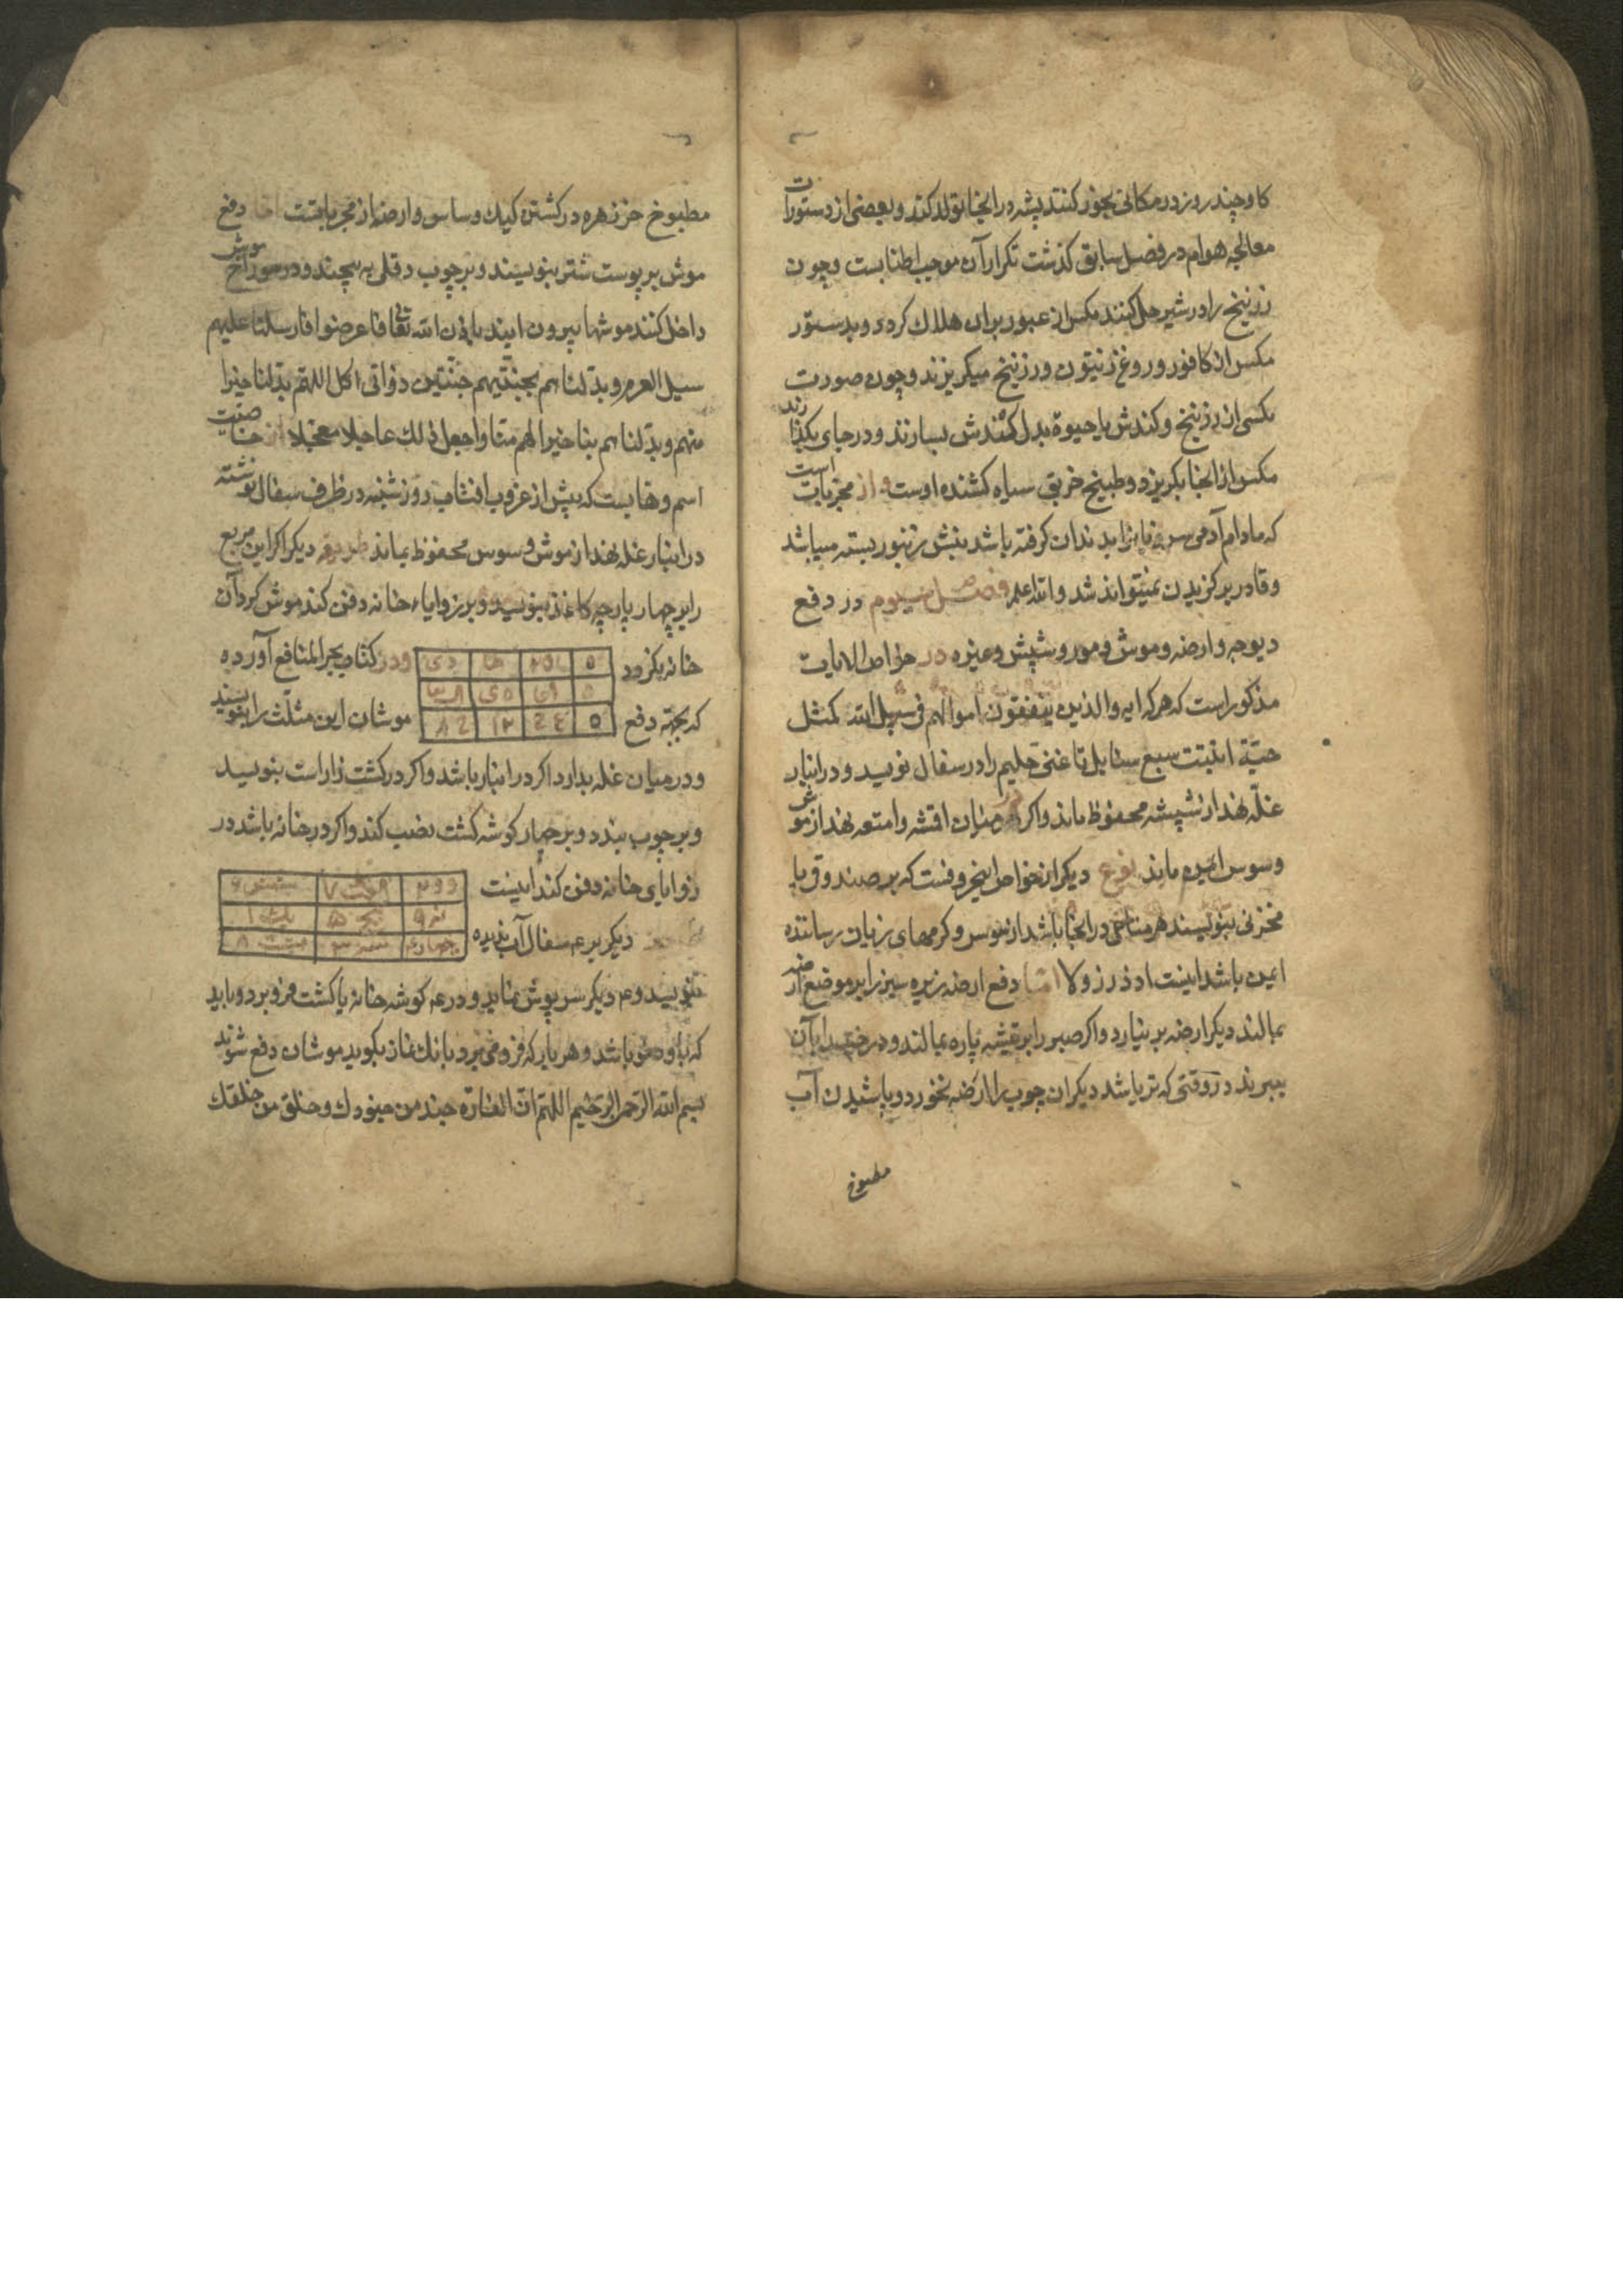 کاو چند روز در مکانی بخور کنند پشه در انجا تولد کند و بعضی از دستورات
معالجه هوام در فصل سابق کذشت تکرار آن موجب اطنابست و چون
زرنیخ را در شیر حل کنند مکس از عبور بران هلاک کردد و بدستور
مکس از کافور و روغن زیتون و زرنیخ میکریزند و چون صورت
مکسی از زرنیخ و کندش یا حیوة بدل کندش بسازند و در جای بکذارند
مکس از انجا بکریزد و طبیخ خربق سیاه کشنده اوست و از مجربات است
که مادام آدمی سر زبانرا بدندان کرفته باشد نیش زنبور بسته میباشد
و قادر بر کزیدن نمیتواند شد والله اعلم فصل سیوم در دفع
دیوجه و ارضه و موش و مور و شپش و غیره در خواص الایات
مذکور است که هرکه ایه والذین ینفقون اموالهم فی سبیل الله کمثل
حبّة انبتت سبع سنابل تا غنی حلیم را در سفال نویسد و در انبار
غلّه نهد از شپشه محفوظ ماند و اکر در میان اقمشه و امتعه نهد از موش
و سوس ایمن ماند نوع دیکر از خواص این حروفست که بر صندوق یا
مخزنی بنویسند هر متاعی در انجا باشد از سوس و کرمهای زیان رساننده
ایمن باشد اینست ا د ذ ر ز و لا اما دفع ارضه زیره سبز را بر موضع ارضه
بمالند دیکر ارضه بر نیارد و اکر صبر را بر تیشه پاره بمالند و درخت را بآن
ببرند در وقتی که تر باشد دیکر ان چوب را ارضه نخورد و پاشیدن آب
مطبوخ
مطبوخ خرزهره در کشتن کیک و ساس و ارضه از مجرباتست اما دفع
موش بر پوست شتر بنویسند و بر چوب دقلی به پیچند و در سوراخ موش
داخل کنند موشها بیرون ایند باذن الله تعالی فاعرضوا فارسلنا علیهم
سیل العرم و بدّلناهم بجنّتیهم جنّتین ذواتی اکل اللهم بدّلنا خیرا
منهم و بدّلناهم بنا خیرا لهم منا واجعل ذلک عاجلا معجّلا از خاصیت
اسم وهابست که پیش از غروب افتاب روز شنبه در ظرف سفال نوشته
در انبار غله نهند از موش و سوس محفوظ بماند طریقه دیکر اکر این مربع
را بر چهار پارچه کاغذ بنویسد و بر زوایاء خانه دفن کند موش کرد آن
خانه نکردد و در کتاب بحر المنافع آورده
که بجهة دفع موشان این مثلّث را بنویسند
و در میان غله بدارد اکر در انبار باشد و اکر در کشت زار است بنویسد
و بر چوب بندد و بر چهار کوشه کشت نصب کند و اکر در خانه باشد در
زوایای خانه دفن کند اینست
دیکر بر ۴ سفال آب ندیده
بنویسد و ۴ دیکر سرپوش نماید و در ۴ کوشه خانه یا کشت فرو برد و باید
که با وضو باشد و هر بار که فرو می برد بانک نماز بکوید موشان دفع شوند
بسم الله الرحمن الرحیم اللهم ان الفارة جند من جنودک و خلق من خلقک